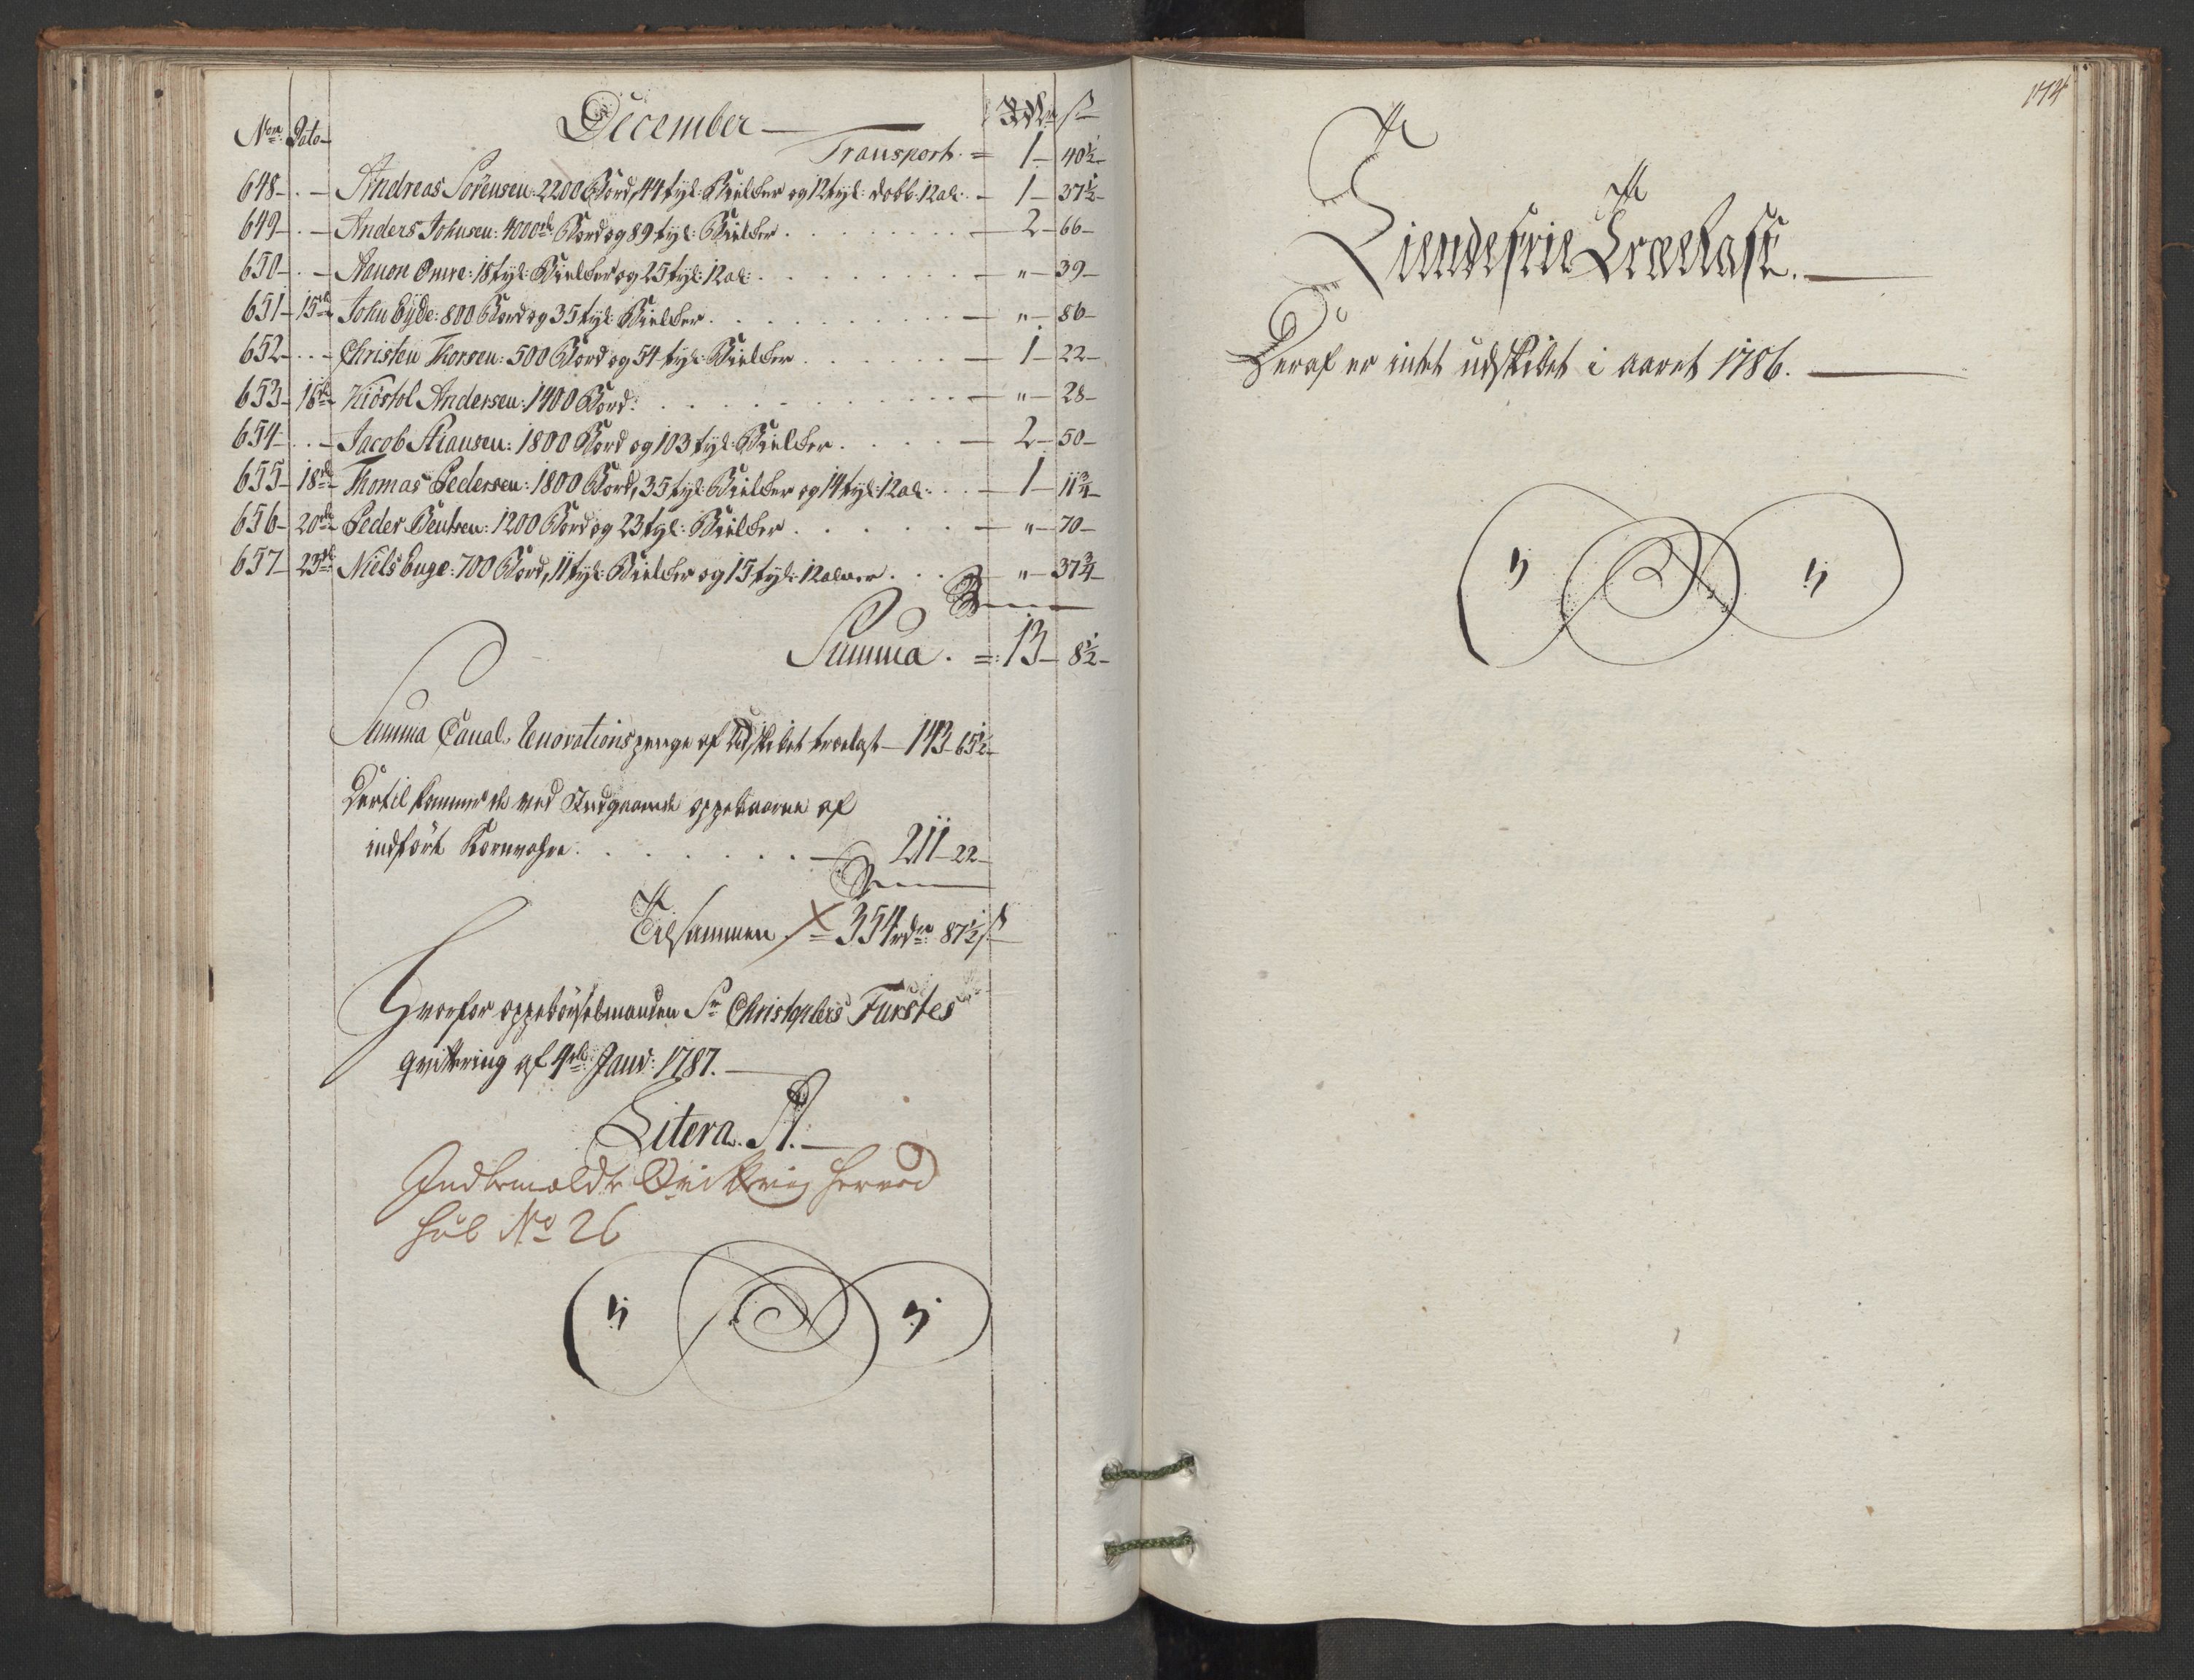 December
Nom: Dato Rdr ß
Transport. = 1 - 40½
648 - . - Andreas Sörensen: 2200 Bord, 44 tyl: Bielker og 12 tyl: dobb: 12 al: - 1 - 37½
649 - . - Anders Johnsen: 4000de Bord og 89 tyl: Bielker . . . - 2 - 66 -
650 - . - Aanon Omre: 18 tyl: Bielker og 25 tyl: 12 al: . . . - " - 39 -
651 - 15de John Eyde: 800 Bord og 35 tyl: Bielker . . . - " - 86 -
652 - . - Christen Thorsen: 500 Bord og 54 tyl: Bielker . . . - 1 - 22 -
653 - 16de Kiöstol Andersen: 1400 Bord: . . . - " - 28 -
654 - . - Jacob Stiansen: 1800 Bord og 103 tyl: Bielker . . . - 2 - 50 -
655 - 18de Thomas Pedersen: 1800 Bord, 35 tyl: Bielker og 14 tyl: 12 al: . . - 1 - 11¾
656 - 20de Peder Bentsen: 1200 Bord og 23 tyl: Bielker . . . - " - 70 -
657 - 23de Niels Enge: 700 Bord, 11 tyl: Bielker og 15 tyl: 12 alner . . . - " - 37¾
Summa . = 13 - 8½ -
Summa Canal Renovationspenge af Udskibet trælast - 143 - 65½
Dertil kommer de ved Indgaaende oppebaarne af
indfört Kornvahre . . . - 211 - 22 -
Tilsammen = 354 rdr 87½ ß
Hvorfor oppebörselsmanden Sr Christophers Fürstes
qvittering af 4de Janv: 1787.
Litera. A.
Indbemeldte Qvittering herved
fül No 26
174
Tiendefrie Trælast.
Deraf er intet udskibet i aaret 1786.